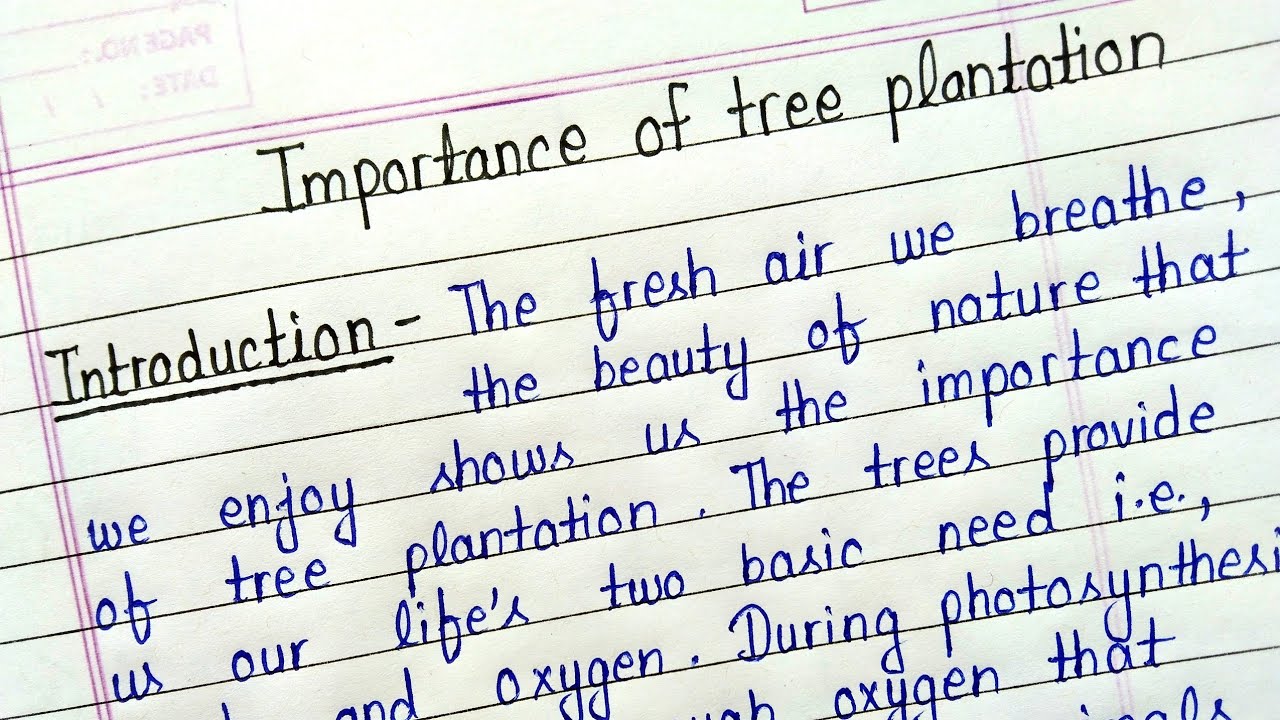 PAGE NO.:
DATE: / /
Importance of tree plantation
Introduction - The fresh air we breathe,
the beauty of nature that
we enjoy shows us the importance
of tree plantation. The trees provide
us our life's two basic need i.e.,
and oxygen. During photosynthesi
oxygen that